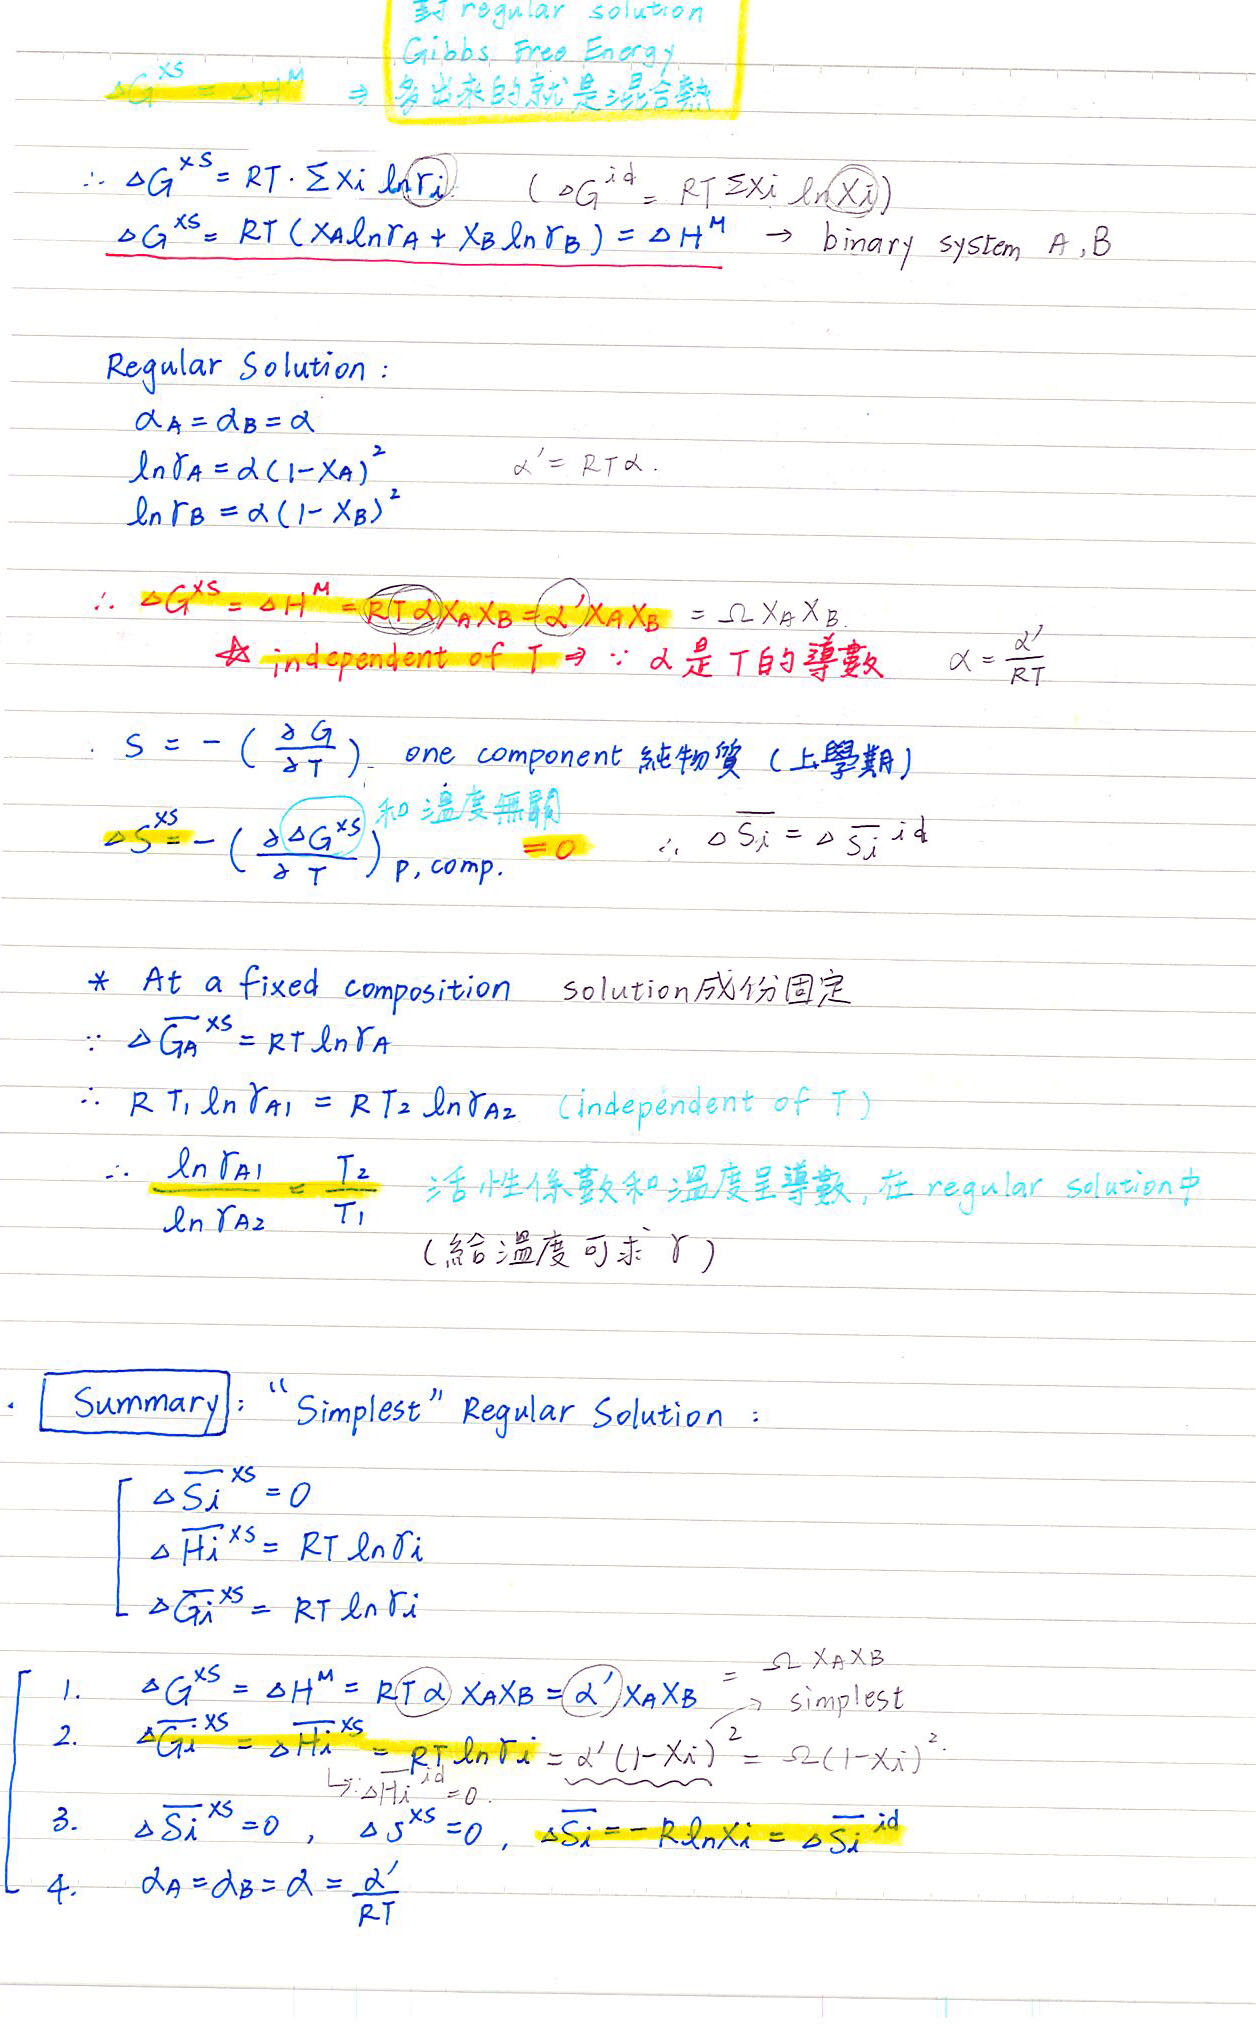 對 regular solution
Gibbs Free Energy
ΔG^xs = ΔH^M ⇒ 多出來的就是混合熱
∴ ΔG^xs = RT · Σ Xi ln γi (ΔG^id = RT Σ Xi ln Xi)
ΔG^xs = RT (XA ln γA + XB ln γB) = ΔH^M → binary system A, B
Regular Solution :
αA = αB = α
ln γA = α(1-XA)^2 α' = RTα.
ln γB = α(1-XB)^2
∴ ΔG^xs = ΔH^M = RTα XA XB = α' XA XB = Ω XA XB.
☆ independent of T ⇒ ∵ α 是 T 的導數 α = α'/RT
· S = -(∂G/∂T) one component 純物質 (上學期)
和溫度無關
ΔS^xs = -(∂ΔG^xs/∂T) P, comp. = 0 ∴ Δ\overline{Si} = Δ\overline{Si}^id
* At a fixed composition solution成份固定
∵ Δ\overline{GA}^xs = RT ln γA
∴ RT1 ln γA1 = RT2 ln γA2 (independent of T)
∴ ln γA1 / ln γA2 = T2/T1 活性係數和溫度呈導數, 在 regular solution中
(給溫度可求 γ)
· Summary : "Simplest" Regular Solution :
Δ\overline{Si}^xs = 0
Δ\overline{Hi}^xs = RT ln γi
Δ\overline{Gi}^xs = RT ln γi
1. ΔG^xs = ΔH^M = RTα XA XB = α' XA XB = Ω XA XB
→ simplest
2. Δ\overline{Gi}^xs = Δ\overline{Hi}^xs = RT ln γi = α'(1-Xi)^2 = Ω(1-Xi)^2.
↳∵ Δ\overline{Hi}^id = 0.
3. Δ\overline{Si}^xs = 0 , ΔS^xs = 0 , Δ\overline{Si} = -R ln Xi = Δ\overline{Si}^id
4. αA = αB = α = α'/RT